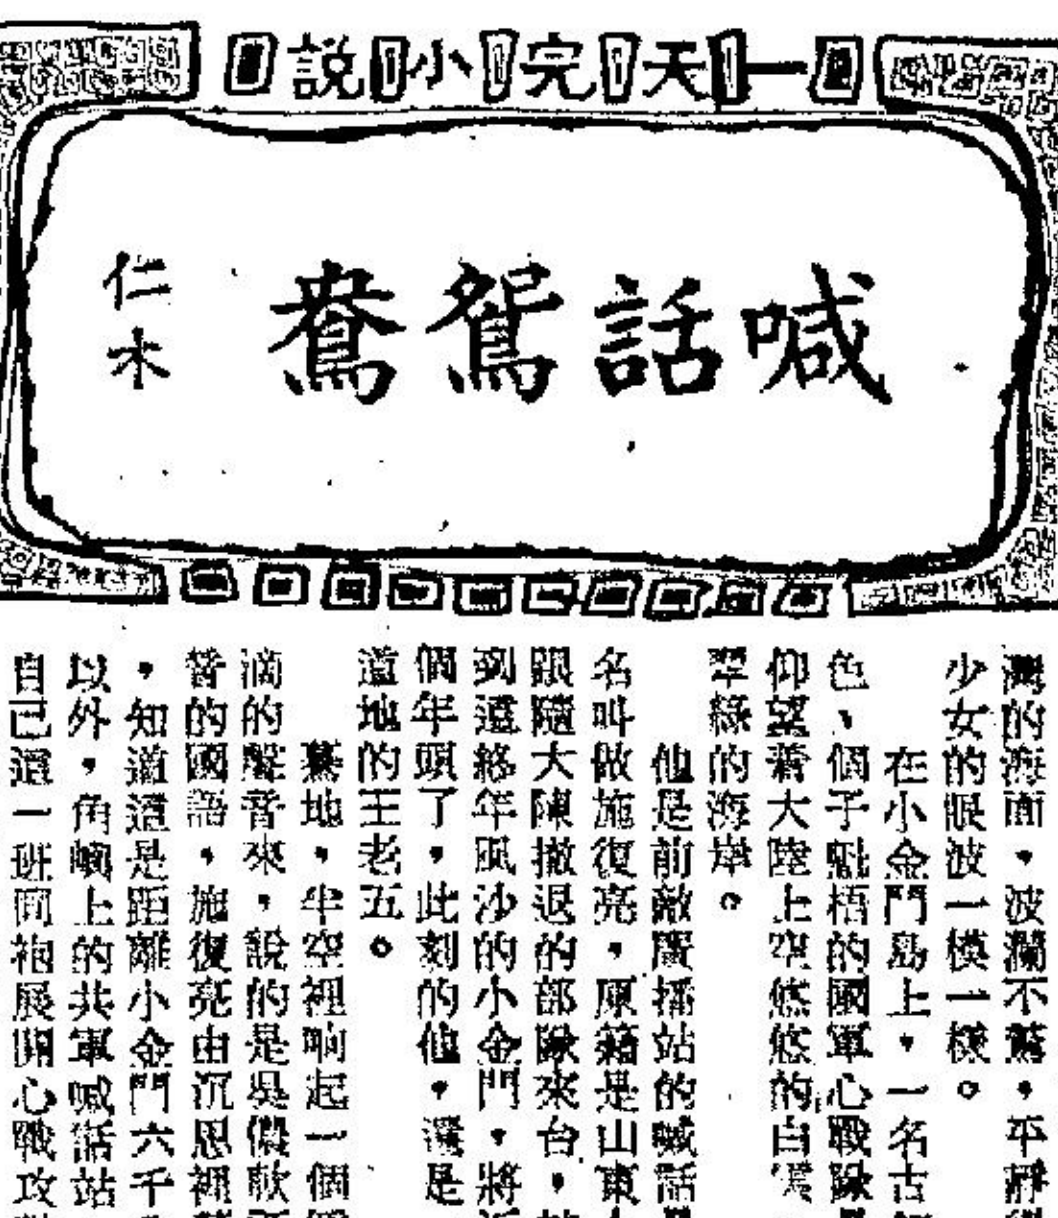 一天完小說
喊話鴛鴦
仁木
瀾的海面，波瀾不驚，平靜
少女的眼波一模一樣。
在小金門島上，一名古
色、個子魁梧的國軍心戰隊
仰望着大陸上空悠悠的白
翠綠的海岸。
他是前敵廣播站的喊話
名叫做施復亮，原籍是山東
跟隨大陳撤退的部隊來台，
到這終年風沙的小金門，將
個年頭了，此刻的他，還是
道地的王老五。
驀地，半空裡响起一個
滴的聲音來，說的是吳儂軟
普的國語，施復亮由沉思裡
，知道這是距離小金門六千
以外，角嶼上的共軍喊話站
自己這一班同袍展開心戰攻